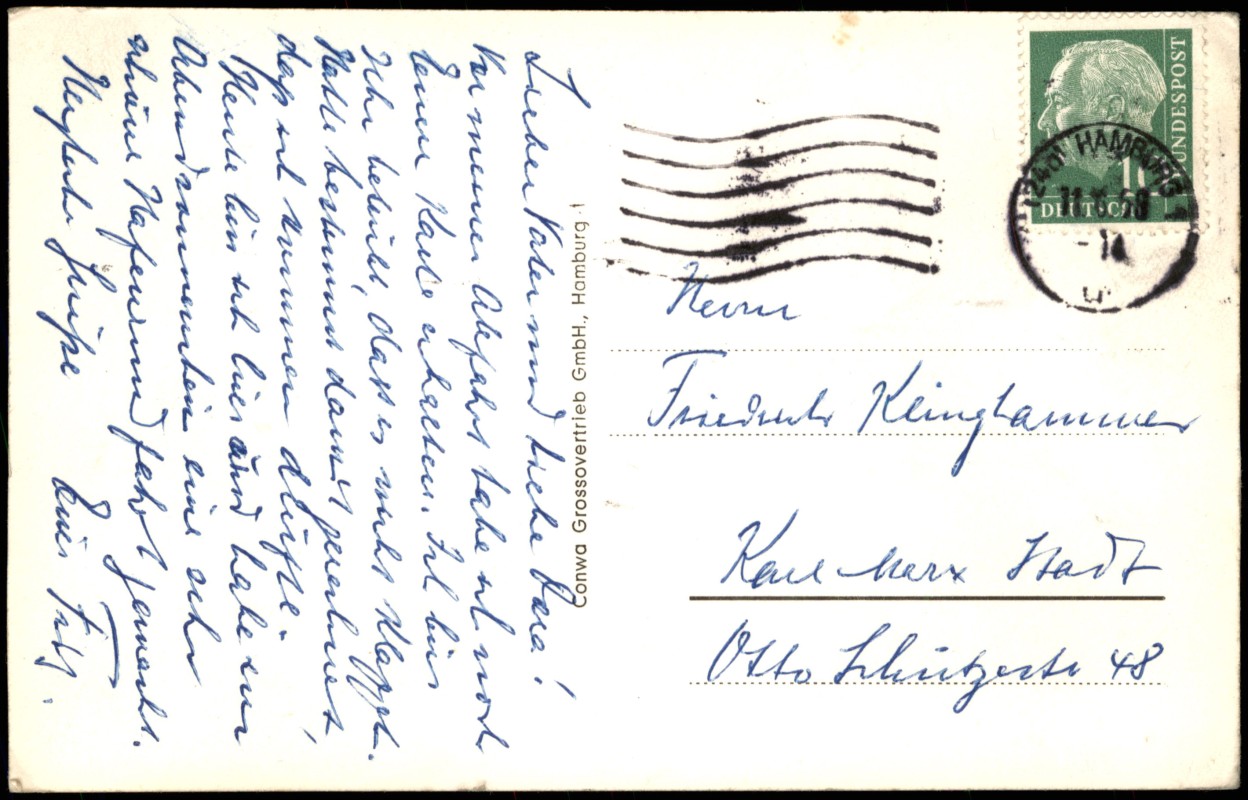 Lieber Vater und liebe Dora!
Vor meiner Abfahrt habe ich noch
Deine Karte erhalten. Ich bin
sehr betrübt, dass es nicht klappt.
Hatte bestimmt damit gerechnet,
daß ich kommen dürfte.
Heute bin ich hier und habe zur
Abendsonnenschein eine sehr
schöne Hafenrundfahrt gemacht.
Herzliche Grüße
Euer Fritz.
Conwa Grossovertrieb GmbH., Hamburg 1
DEUTSCHE BUNDESPOST
10
(24a) HAMBURG 1
Herrn
Friedrich Klinghammer
Karl-Marx Stadt
Otto Schützestr 48